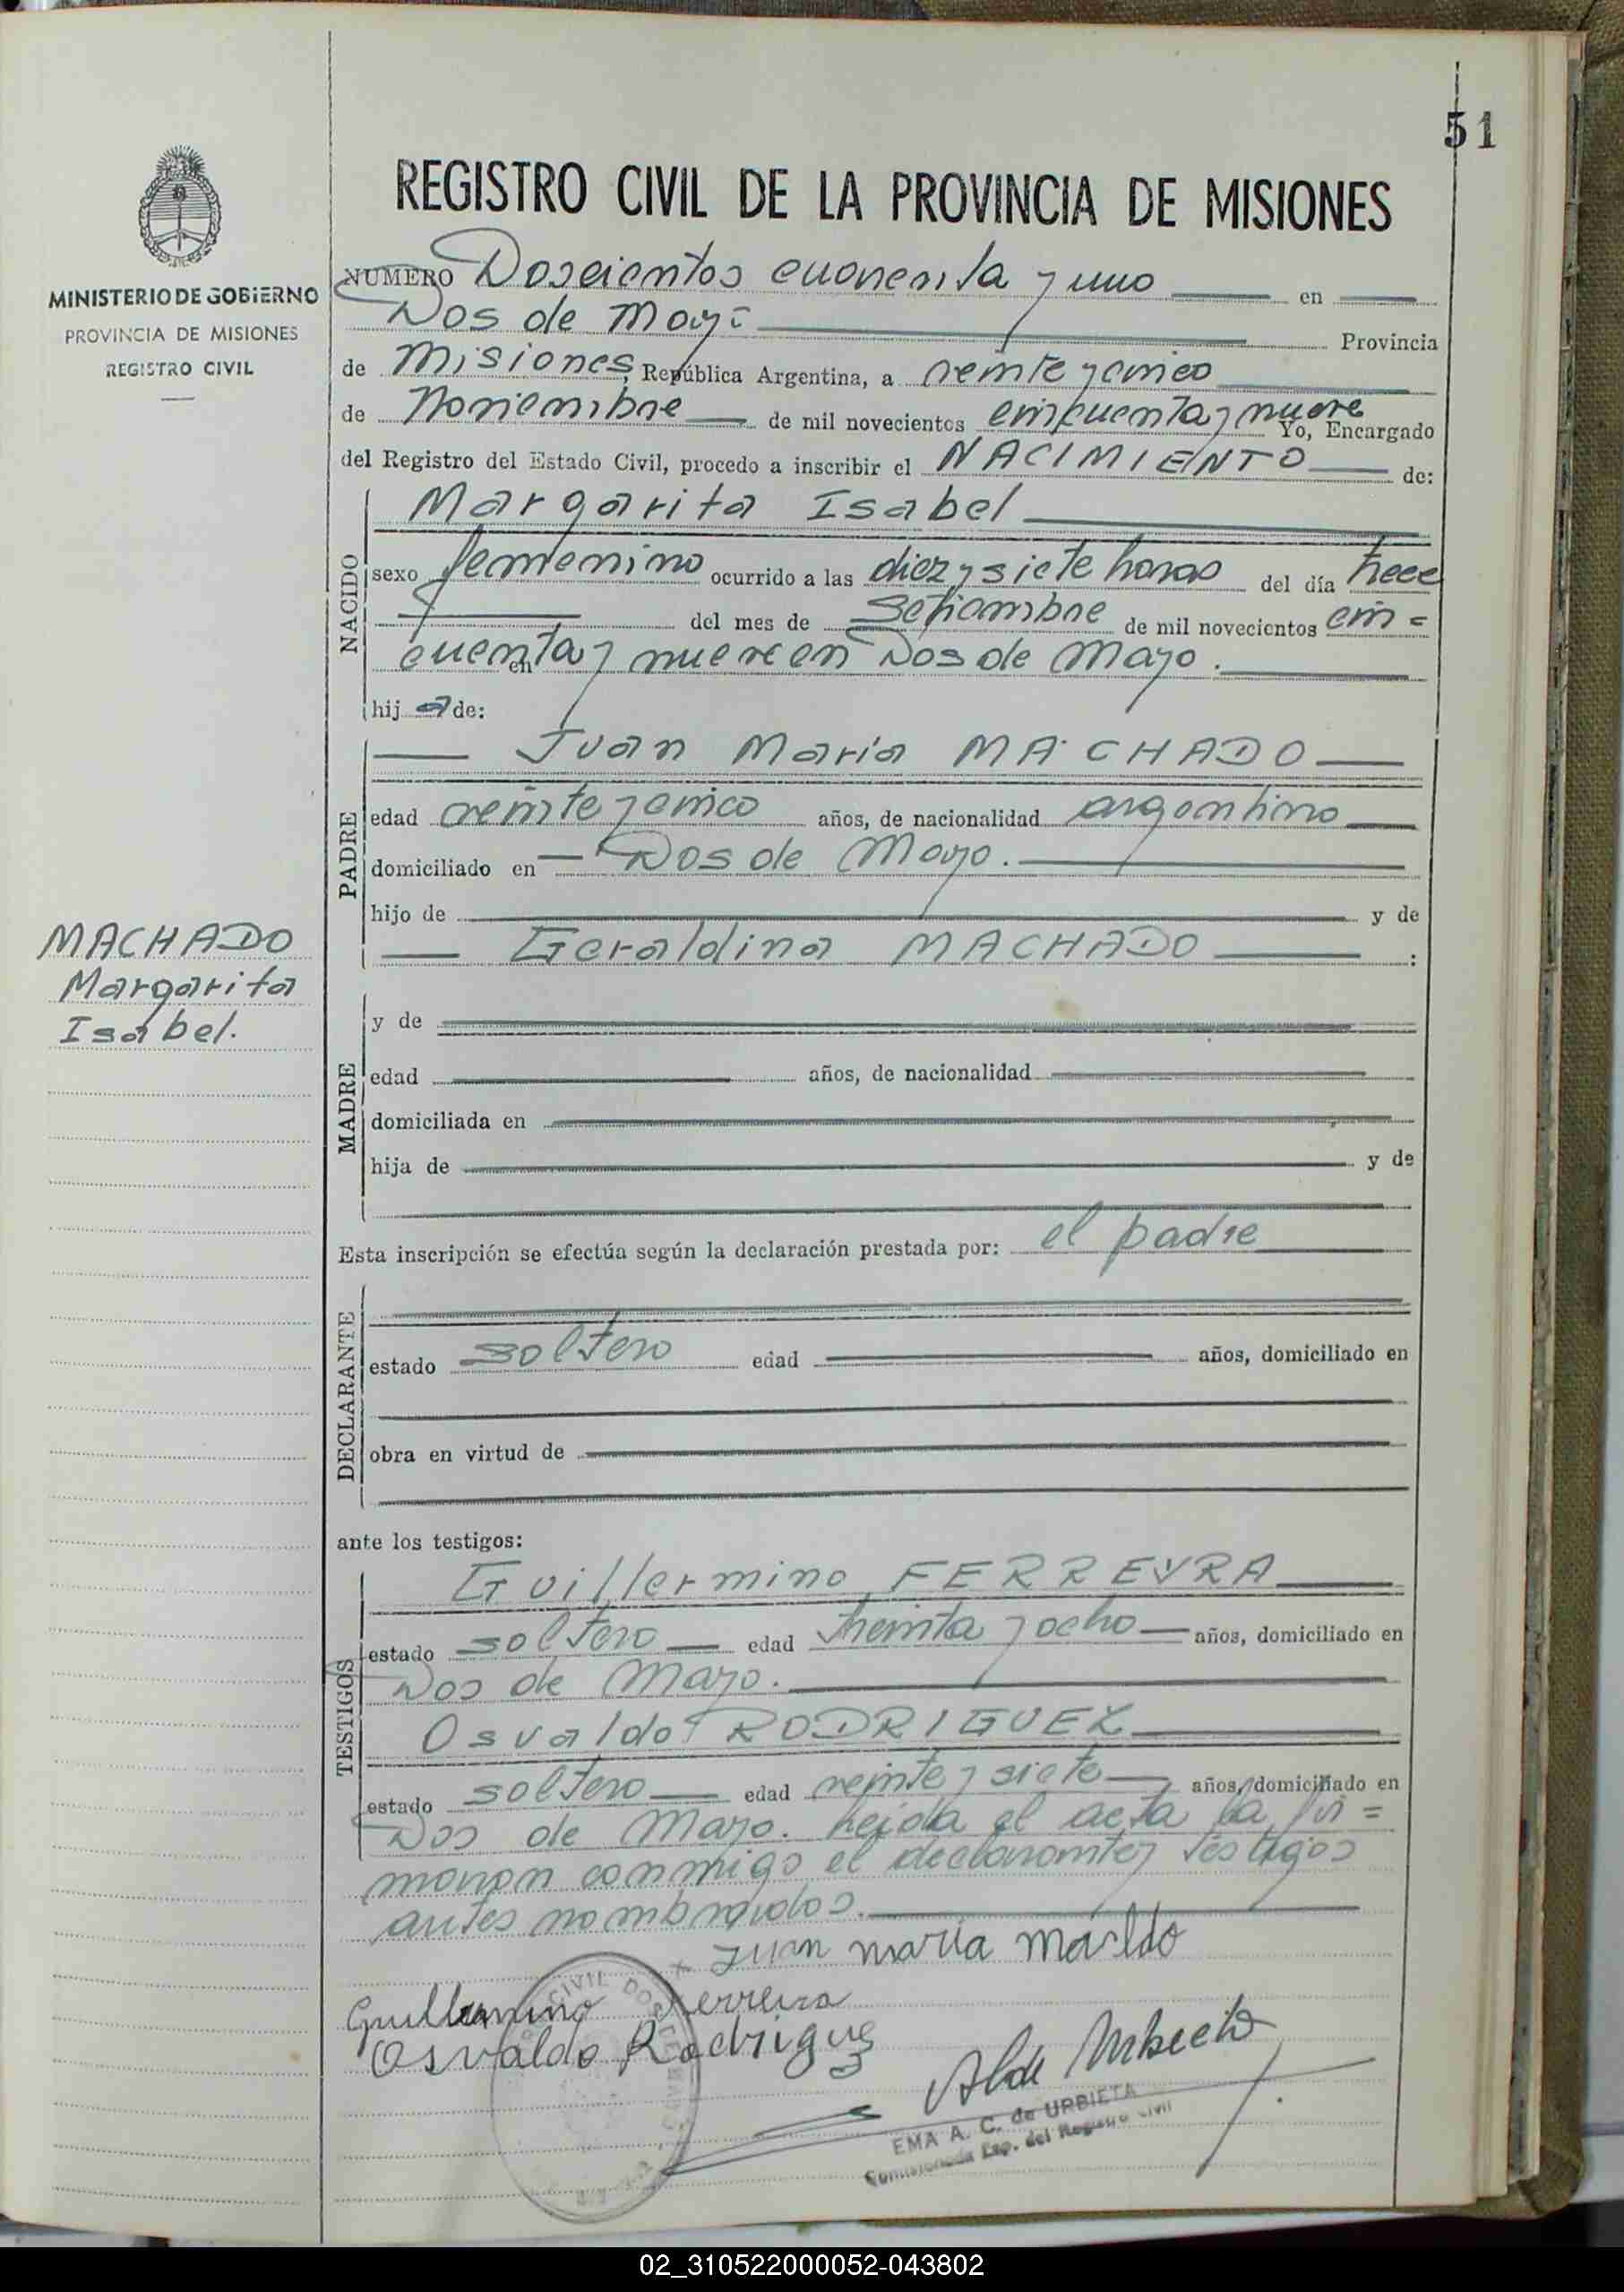 51
REGISTRO CIVIL DE LA PROVINCIA DE MISIONES
MINISTERIO DE GOBIERNO
PROVINCIA DE MISIONES
REGISTRO CIVIL
NUMERO Doscientos cuarenta y uno en
Dos de Mayo Provincia
de Misiones, República Argentina, a veinte y cinco
de Noviembre de mil novecientos cincuenta y nueve Yo, Encargado
del Registro del Estado Civil, procedo a inscribir el NACIMIENTO de:
NACIDO
Margarita Isabel
sexo femenino ocurrido a las diez y siete horas del día trece
del mes de Setiembre de mil novecientos cin=
cuenta y nueve en en Dos de Mayo.
hij a de:
PADRE
Juan Maria MACHADO
edad veinte y cinco años, de nacionalidad argentino
domiciliado en Dos de Mayo.
hijo de y de
Geraldina MACHADO :
MACHADO
Margarita
Isabel.
MADRE
y de
edad años, de nacionalidad
domiciliada en
hija de y de
Esta inscripción se efectúa según la declaración prestada por: el padre
DECLARANTE
estado soltero edad años, domiciliado en
obra en virtud de
ante los testigos:
TESTIGOS
Guillermino FERREYRA
estado soltero edad treinta y ocho años, domiciliado en
Dos de Mayo.
Osvaldo RODRIGUEZ
estado soltero edad veinte y siete años, domiciliado en
Dos de Mayo. Leida el acta la fir=
maron conmigo el declarante y testigos
antes nombrados.
x Juan maria
Guillermino Ferreira
Osvaldo Rodriguez
CIVIL DOS DE MAYO
EMA A. C. de URBIETA
Comisionada Esp. del Registro Civil
02_310522000052-043802